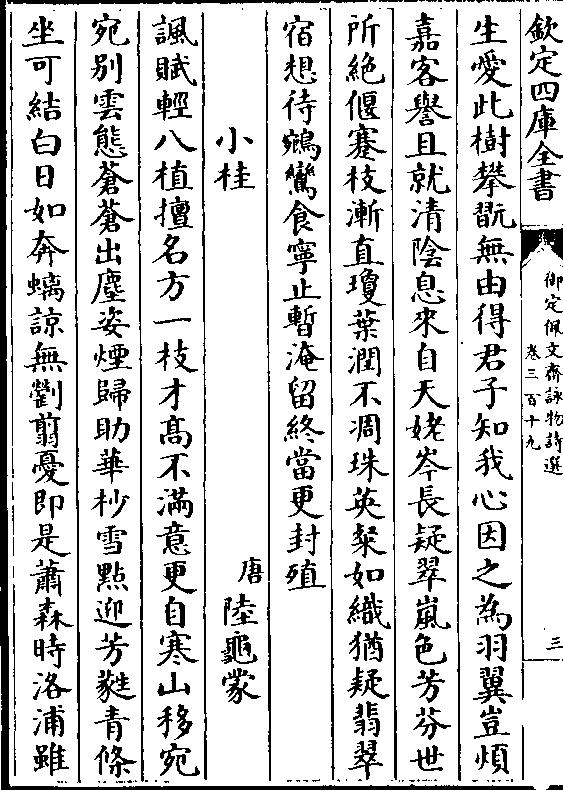 欽定四庫全書
御定佩文齋詠物詩選
卷三百十九
三
生愛此樹攀翫無由得君子知我心因之為羽翼豈煩
嘉客譽且就清陰息來自天姥岑長疑翠嵐色芬芳世
所絶偃蹇枝漸直瓊葉潤不凋珠英粲如織猶疑翡翠
宿想待鵷鸞食寧止暫淹留終當更封殖
小桂
唐陸龜蒙
諷賦輕八植擅名方一枝才髙不滿意更自寒山移宛
宛别雲態蒼蒼出塵姿煙歸助華杪雪點迎芳蕤青條
坐可結白日如奔螭諒無劉翦憂即是蕭森時洛浦雖